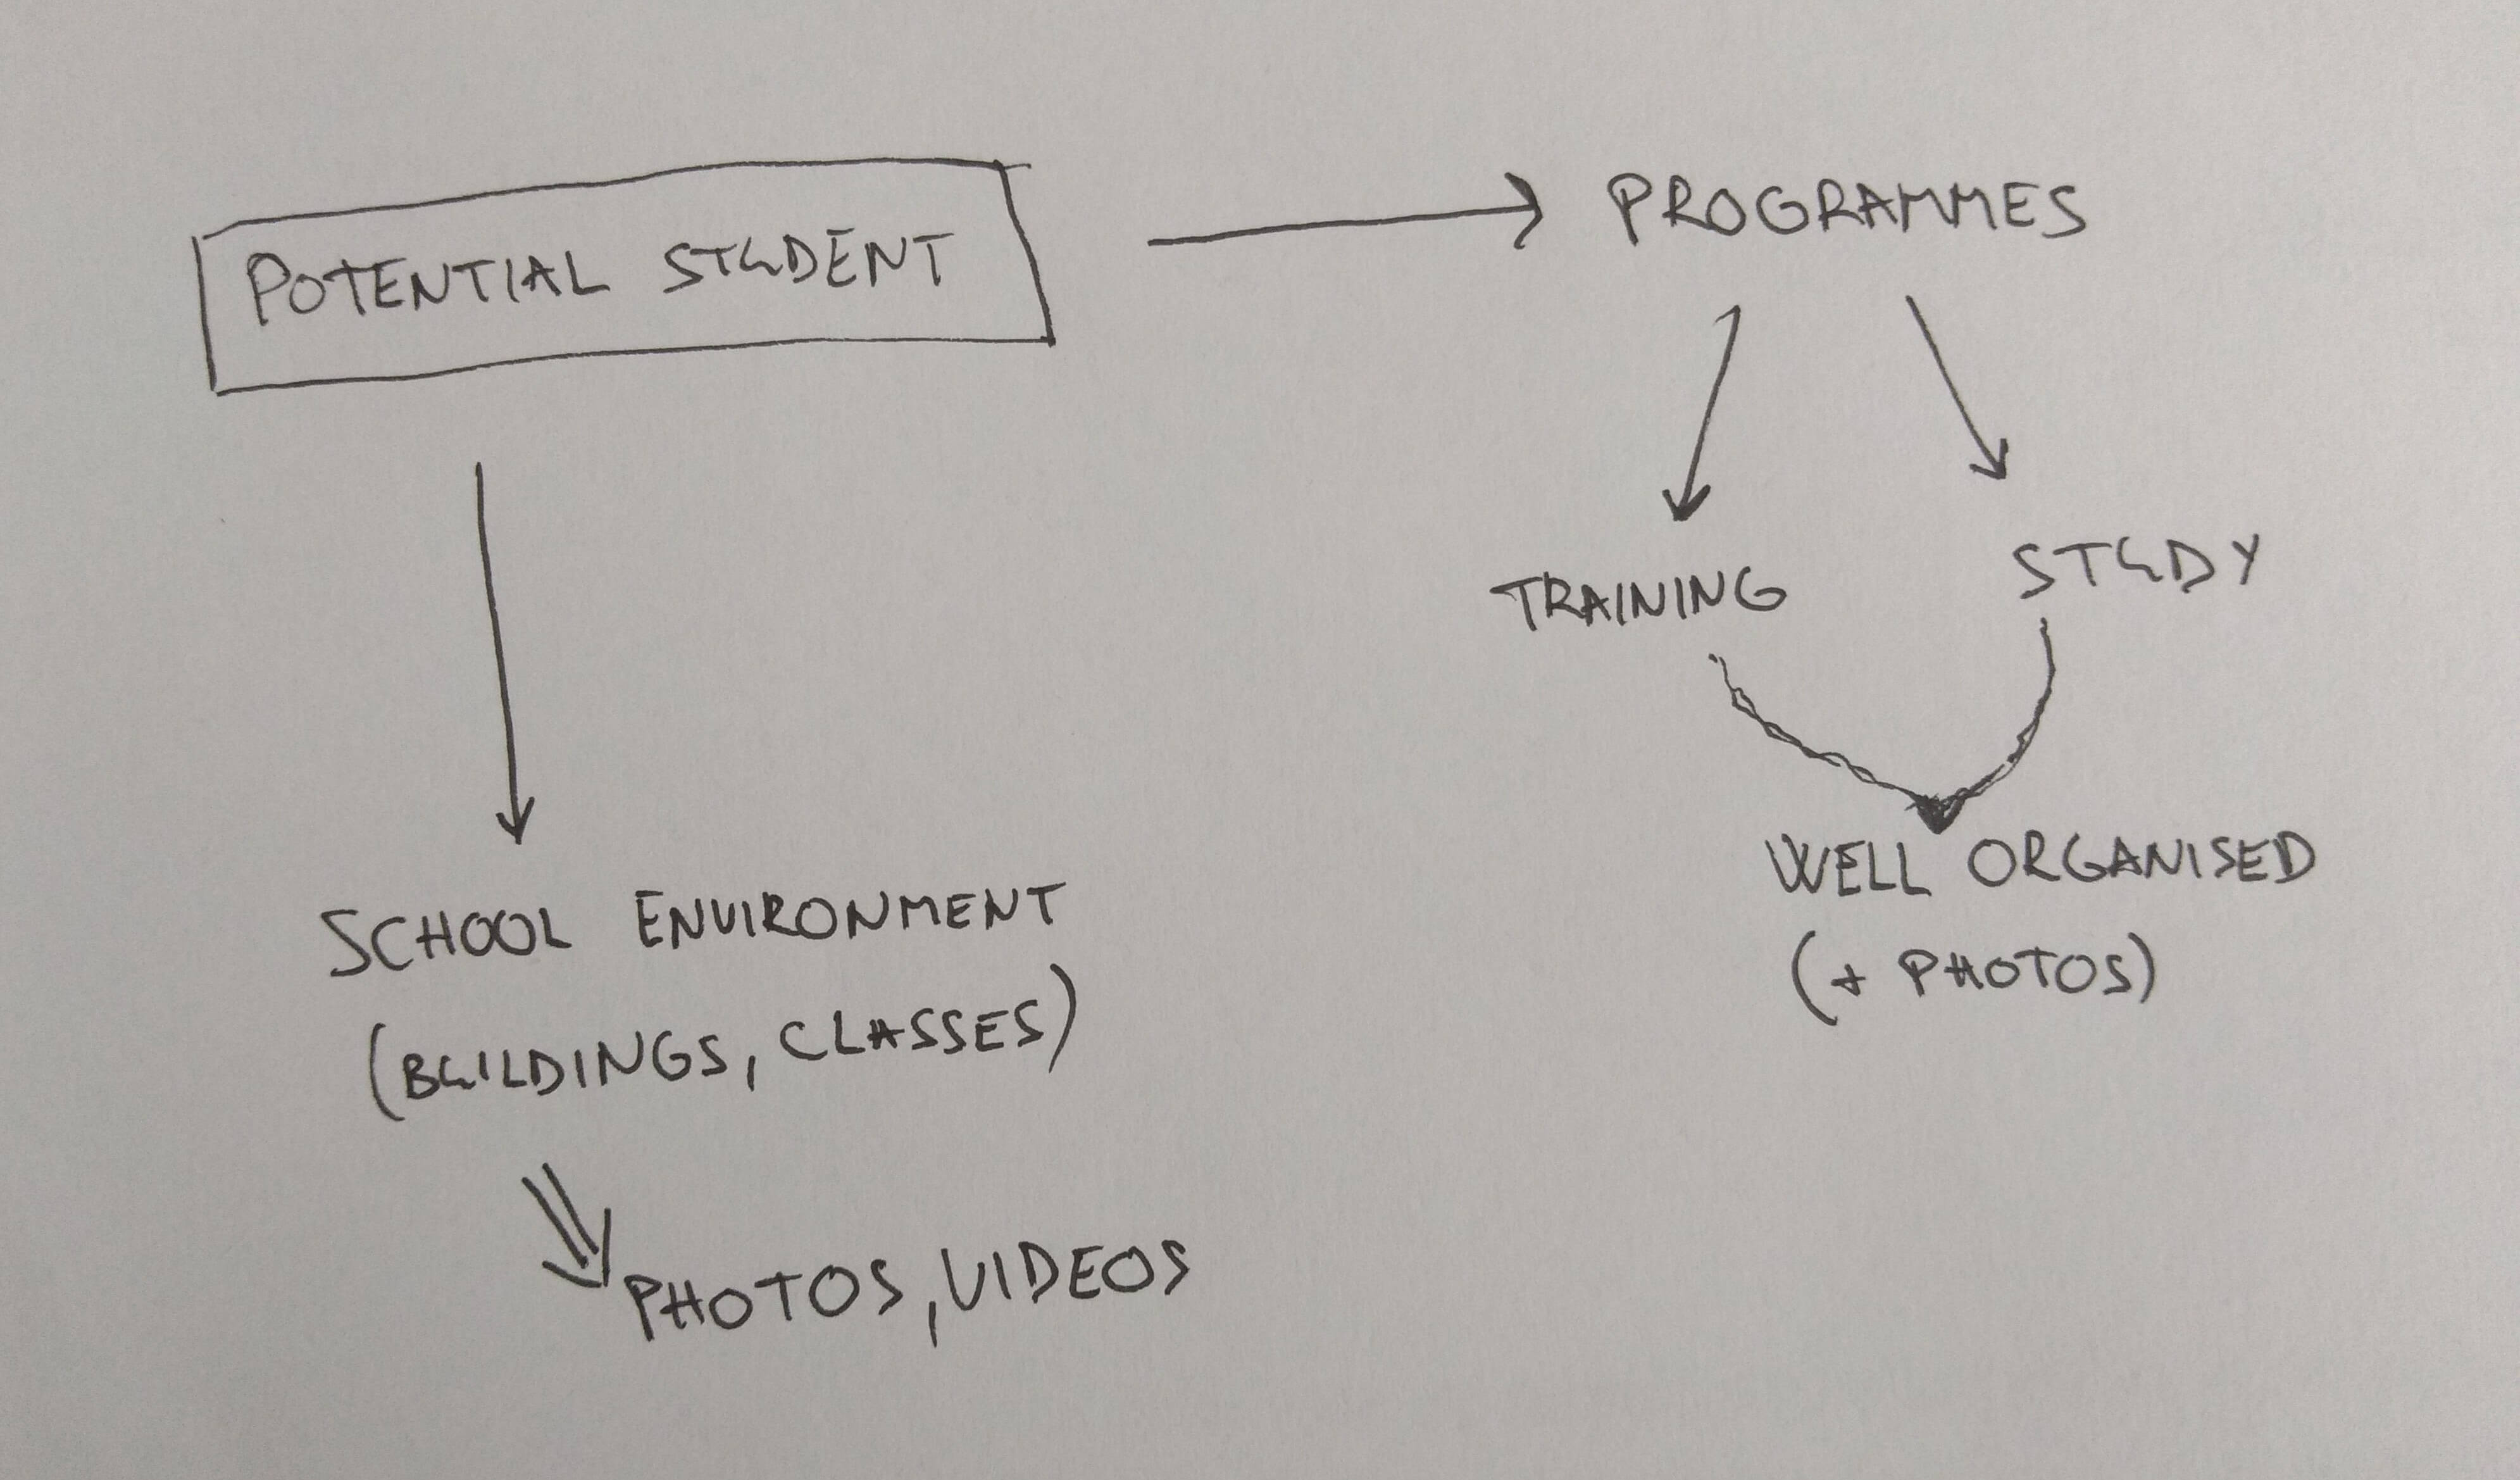 POTENTIAL STUDENT
PROGRAMMES
TRAINING
STUDY
WELL ORGANISED
(+ PHOTOS)
SCHOOL ENVIRONMENT
(BUILDINGS, CLASSES)
PHOTOS, VIDEOS